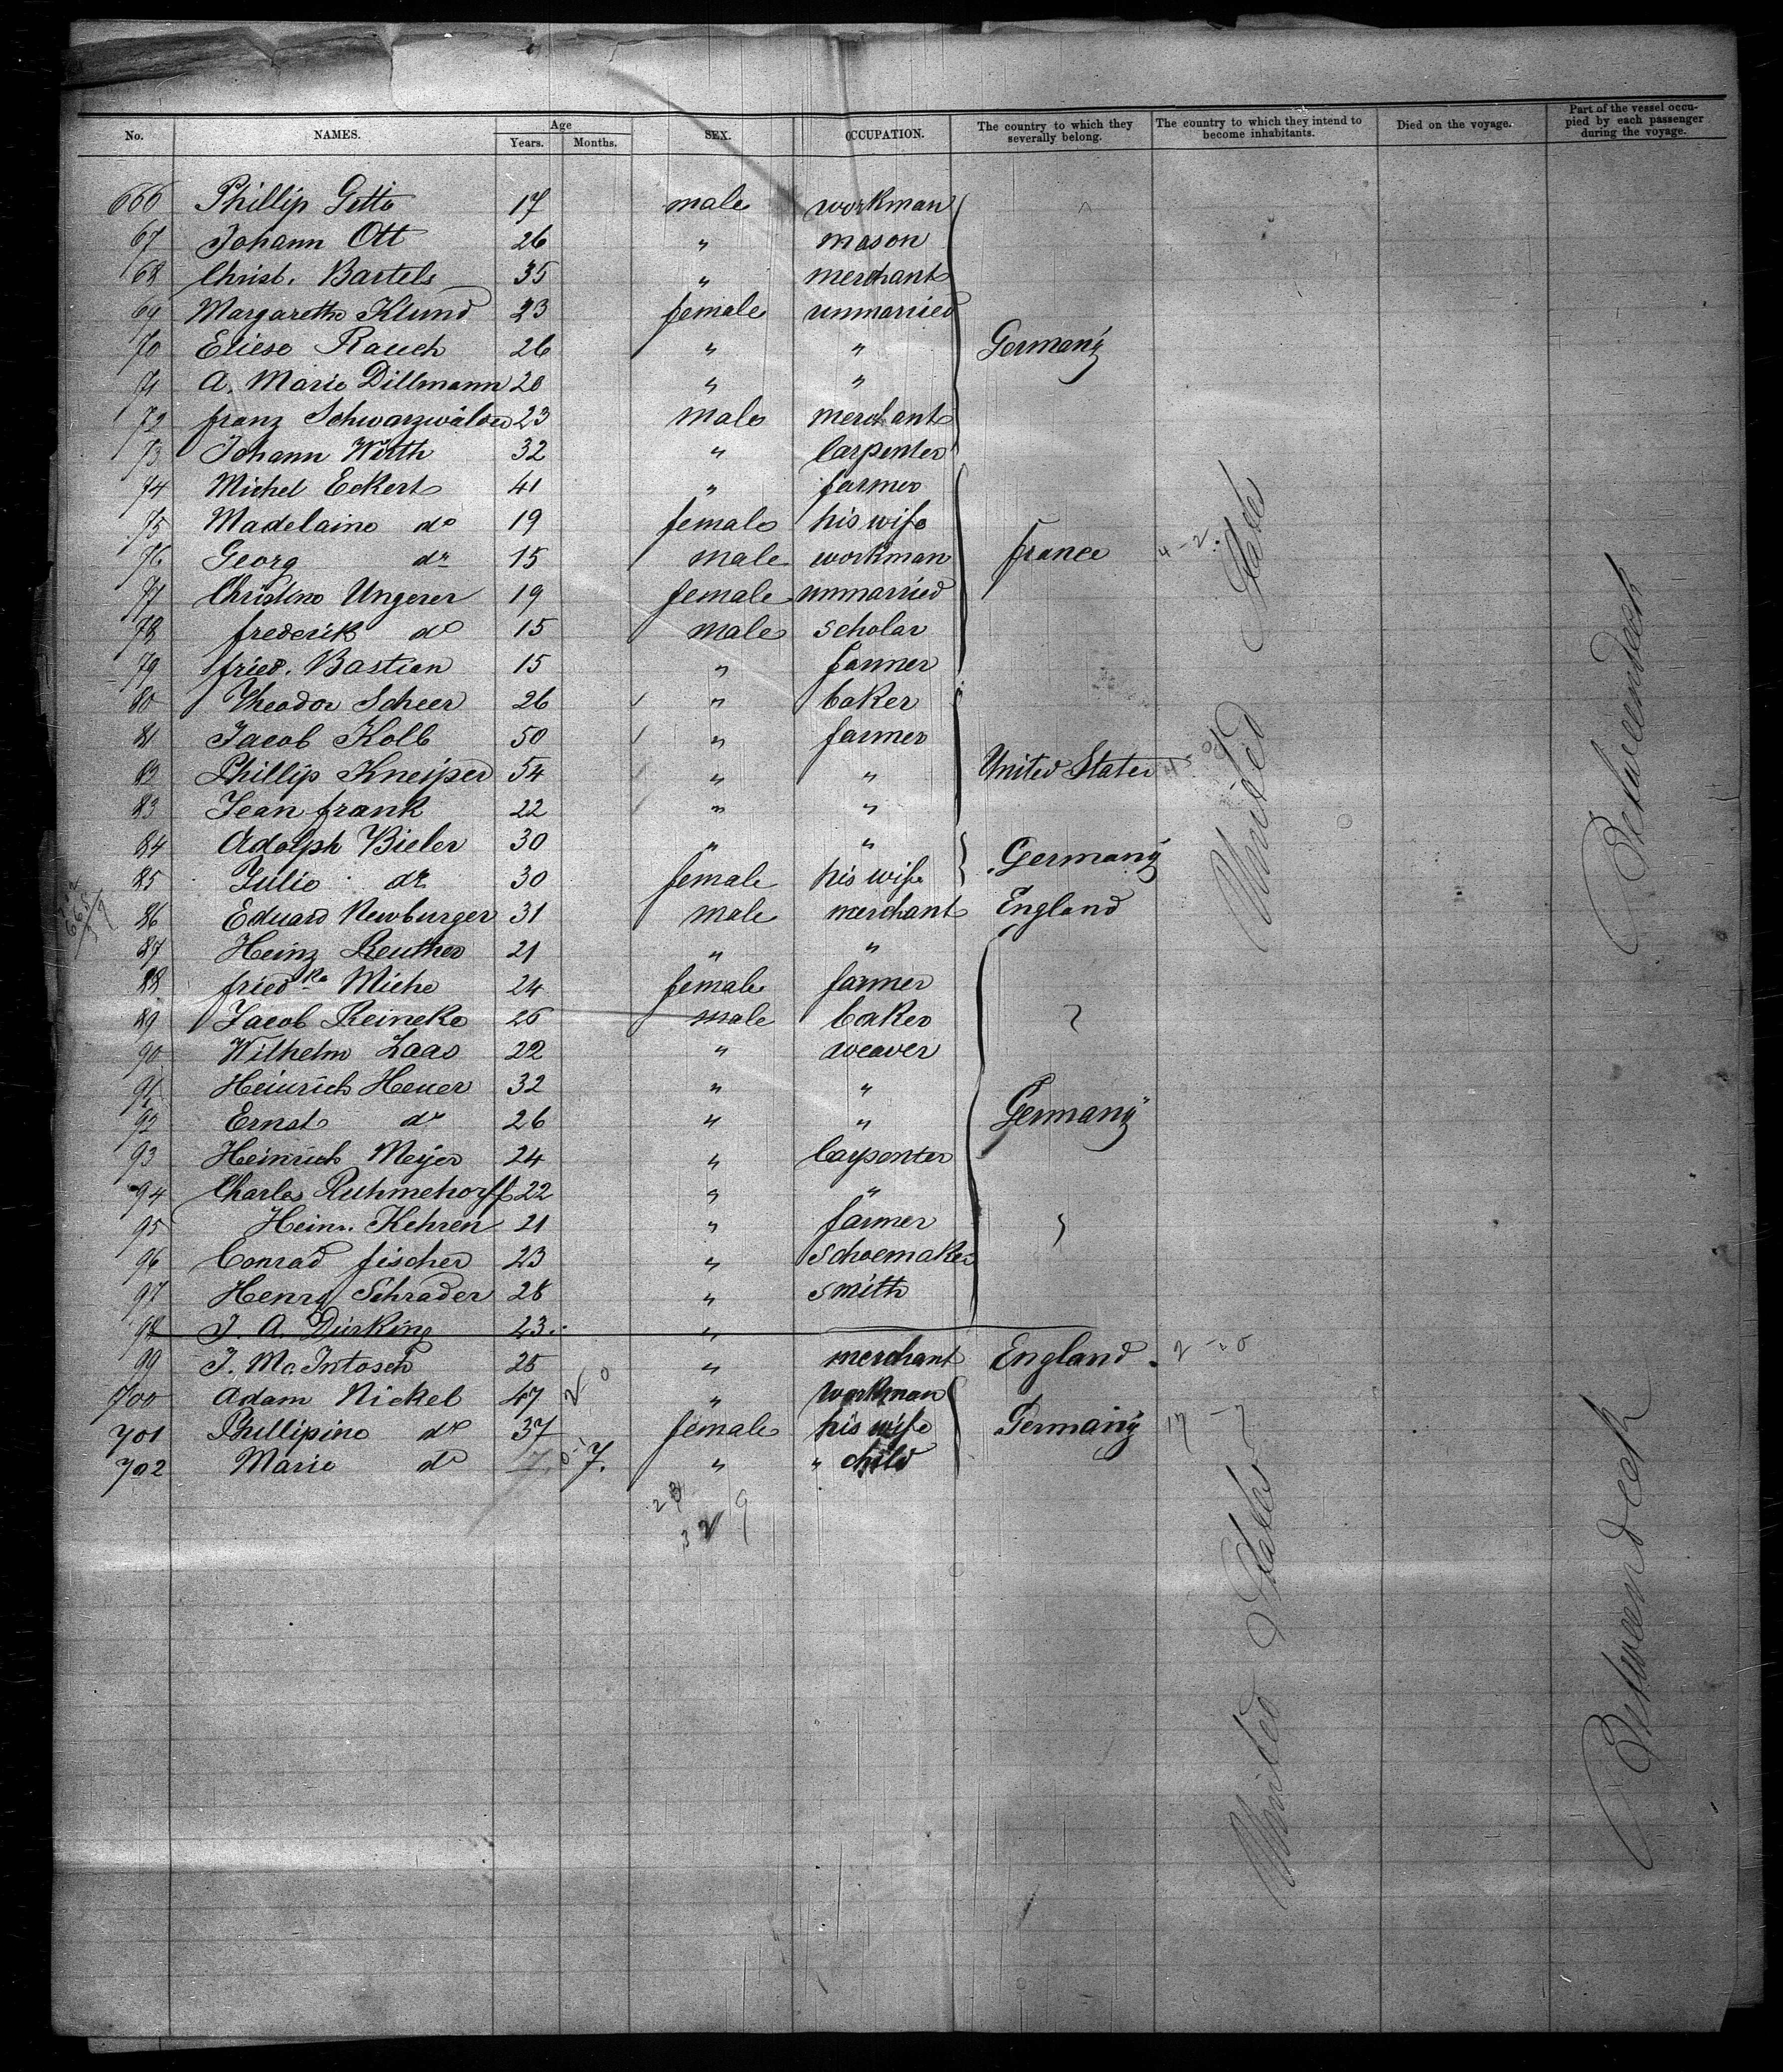 No. NAMES. Age Years. Months. SEX. OCCUPATION. The country to which they severally belong. The country to which they intend to become inhabitants. Died on the voyage. Part of the vessel occupied by each passenger during the voyage.
666 Phillip Getto 17 male workman
67 Johann Ott 26 " mason
68 Christ. Bartels 35 " merchant
69 Margaretha Klund 23 female unmarried
70 Eliese Rauch 26 " " Germany
71 A. Marie Dillmann 20 " "
72 franz Schwarzwälder 23 male merchant
73 Johann Wirth 32 " Carpenter
74 Michel Eckert 41 " farmer
75 Madelaine do 19 female his wife
76 Georg do 15 male workman france 4-2
77 Christine Ungerer 19 female unmarried
78 frederik do 15 male scholar
79 fried. Bastian 15 " farmer
80 Theodor Scheer 26 " baker
81 Jacob Kolb 50 " farmer
82 Phillip Kneiper 54 " " United States
83 Jean frank 22 " "
84 Adolph Bieler 30 " " Germany
85 Julie do 30 female his wife
86 Eduard Newburger 31 male merchant England
87 Heinz Reuther 21 " "
88 friedke Miche 24 female farmer
89 Jacob Reineke 25 male baker
90 Wilhelm Laas 22 " weaver
91 Heinrich Heuer 32 " "
92 Ernst do 26 " " Germany
93 Heinrich Meyer 24 " Carpenter
94 Charles Ruhmehorff 22 " "
95 Heinr. Kehren 21 " farmer
96 Conrad fischer 23 " Schoemaker
97 Henry Schrader 28 " smith
98 J. A. Dürking 23 "
99 J. Mc.Intosch 25 " merchant England. 2-0
700 Adam Nickel 47 " workman
701 Phillipine do 37 female his wife Germany 17-7
702 Marie do 7. " " child
United States
United States
Betweendeck
Betweendeck